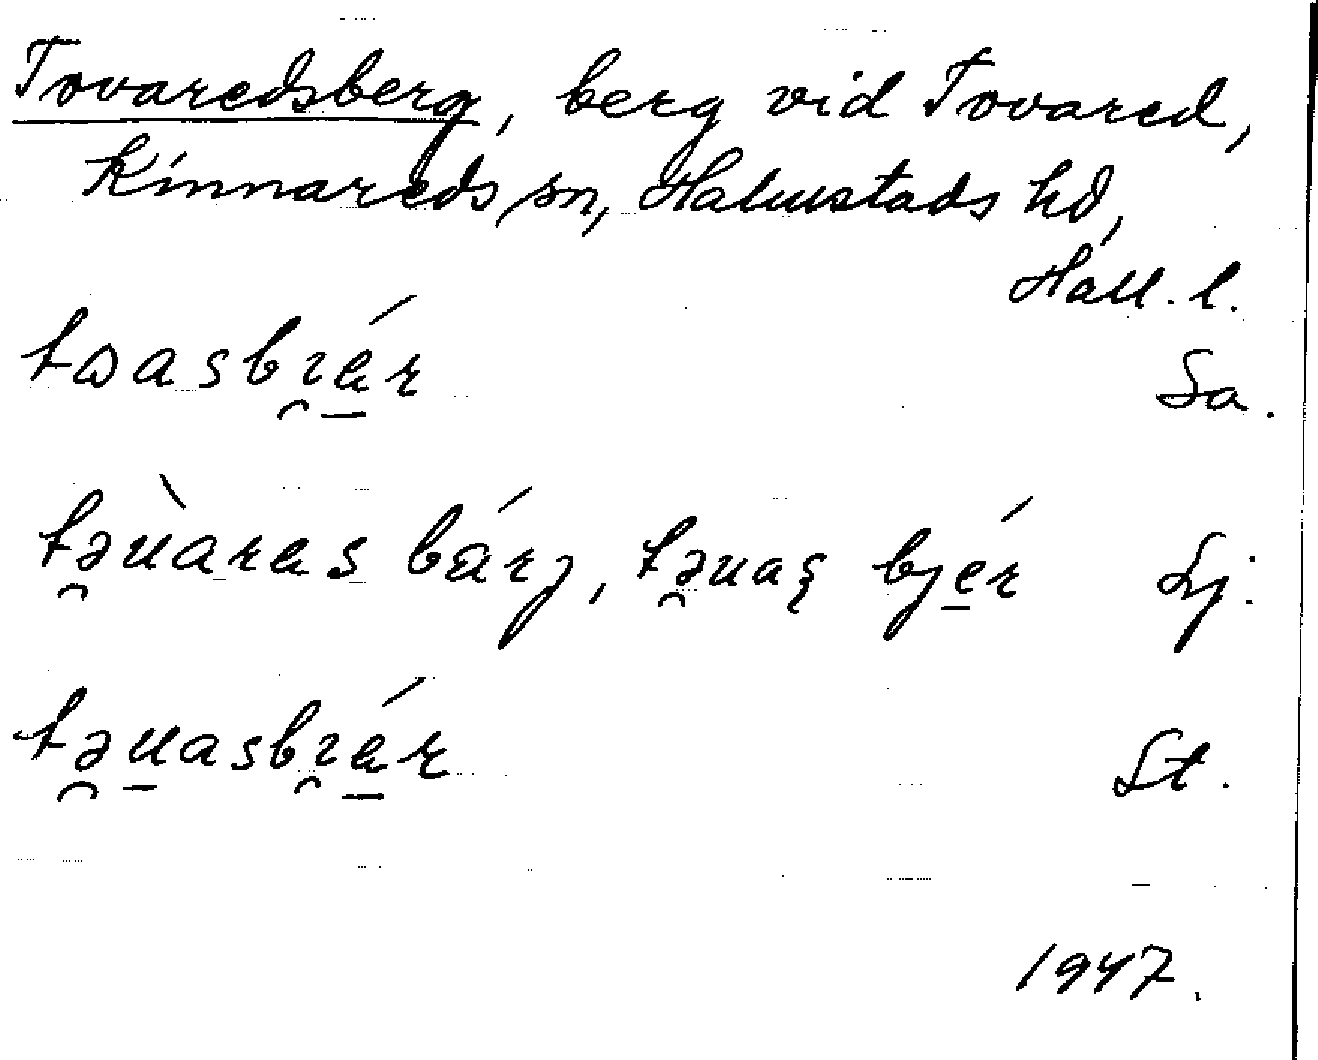 Tovaredsberg, berg vid Tovared,
Kinnareds sn, Halmstads hd,
Hall. l.
twasbı̯e̱ŕ Sa.
tə̯ùaras bárȷ, tə̯uas̨ bje̱ŕ Lj.
tə̯u̱asbı̯e̱ŕ St.
1947.